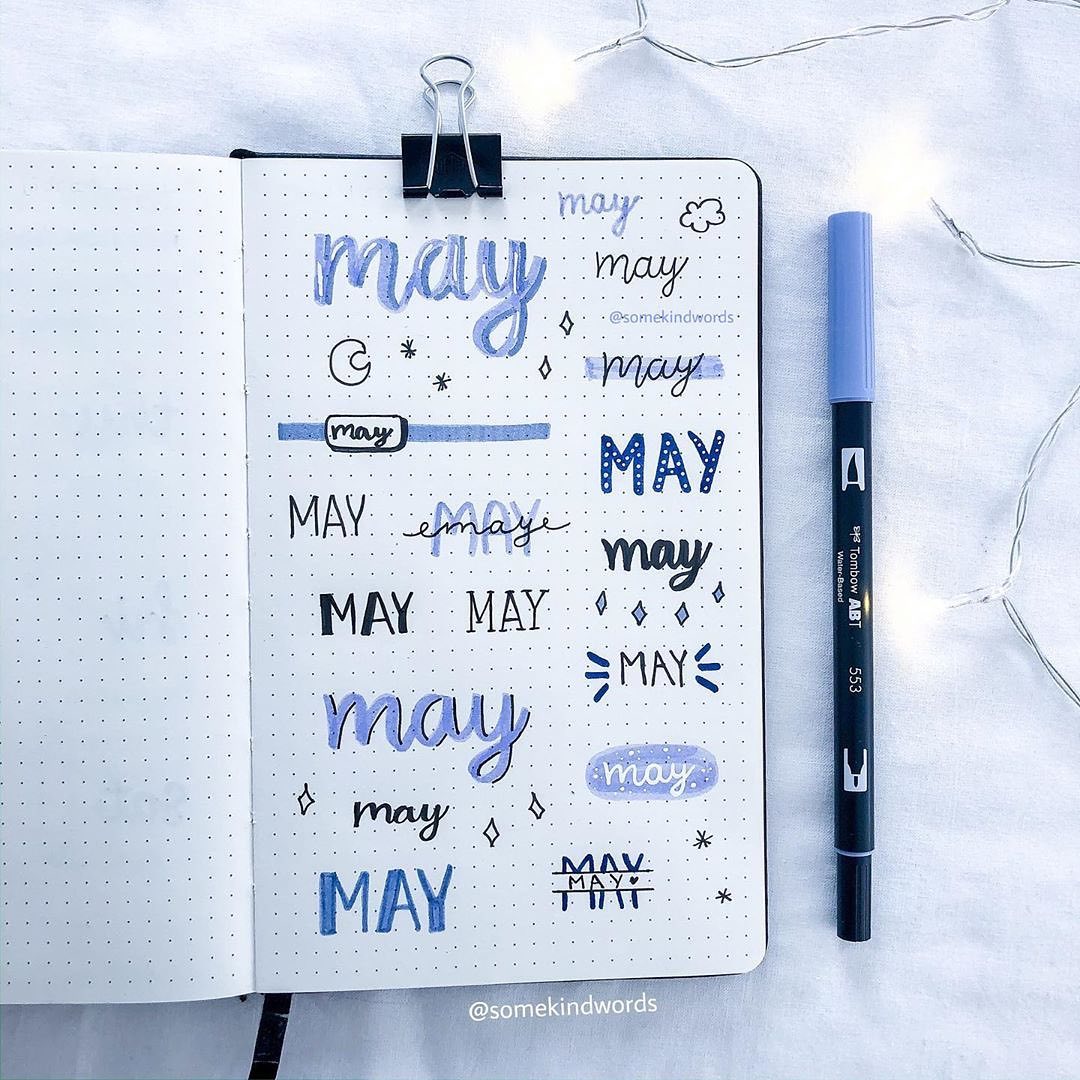 may
may
may
@somekindwords
may
may
MAY
MAY
MAY
emaye
may
MAY
MAY
MAY
may
may
may
MAY
MAY
MAY
@somekindwords
Tombow ABT
Water-Based
553